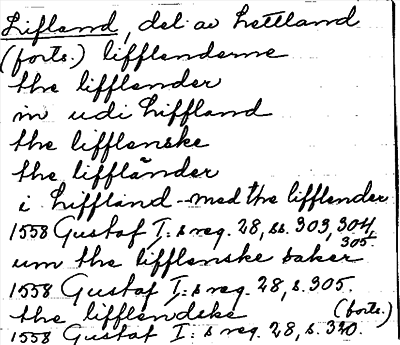 Lifland, del av Lettland
(forts.) lifflenderne
the lifflender
in udi Liffland
the lifflenske
the liffländer
i Liffland - med the lifflender
1558 Gustaf I:s reg. 28, ss. 303, 304,
305.
um the lifflenske saker
1558 Gustaf I:s reg. 28, s. 305.
the lifflendske (forts.)
1558 Gustaf I:s reg. 28, s. 320.